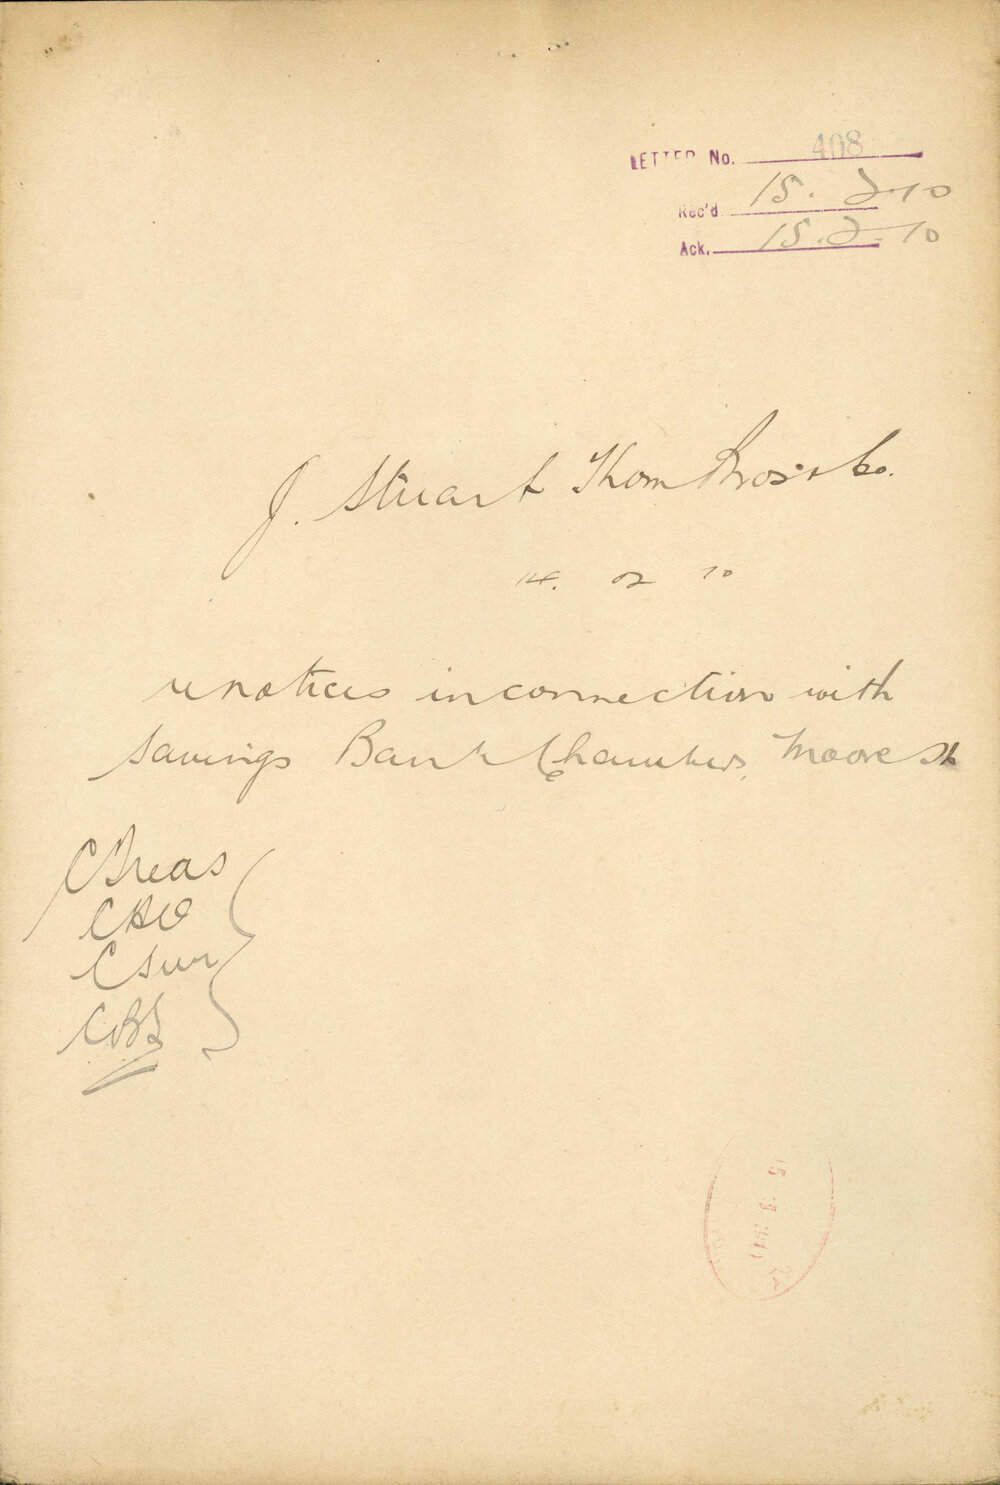 LETTER No. 408
Rec'd 15.2.10
Ack. 15.2.10
J. Stuart Thom Bros & Co.
14. 02 10
re notices in connection with
Savings Bank Chambers, Moore St
C Treas
CHO
C Sur
CBS
15